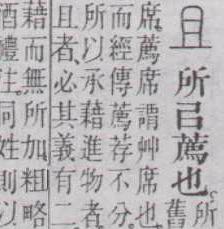 且 所㠯薦也
所
舊
席。薦席謂艸席也
而經傳薦荐不分
所以承藉進物者
且者、必其義有二
藉而無所加粗略
酒禮注同姓則以